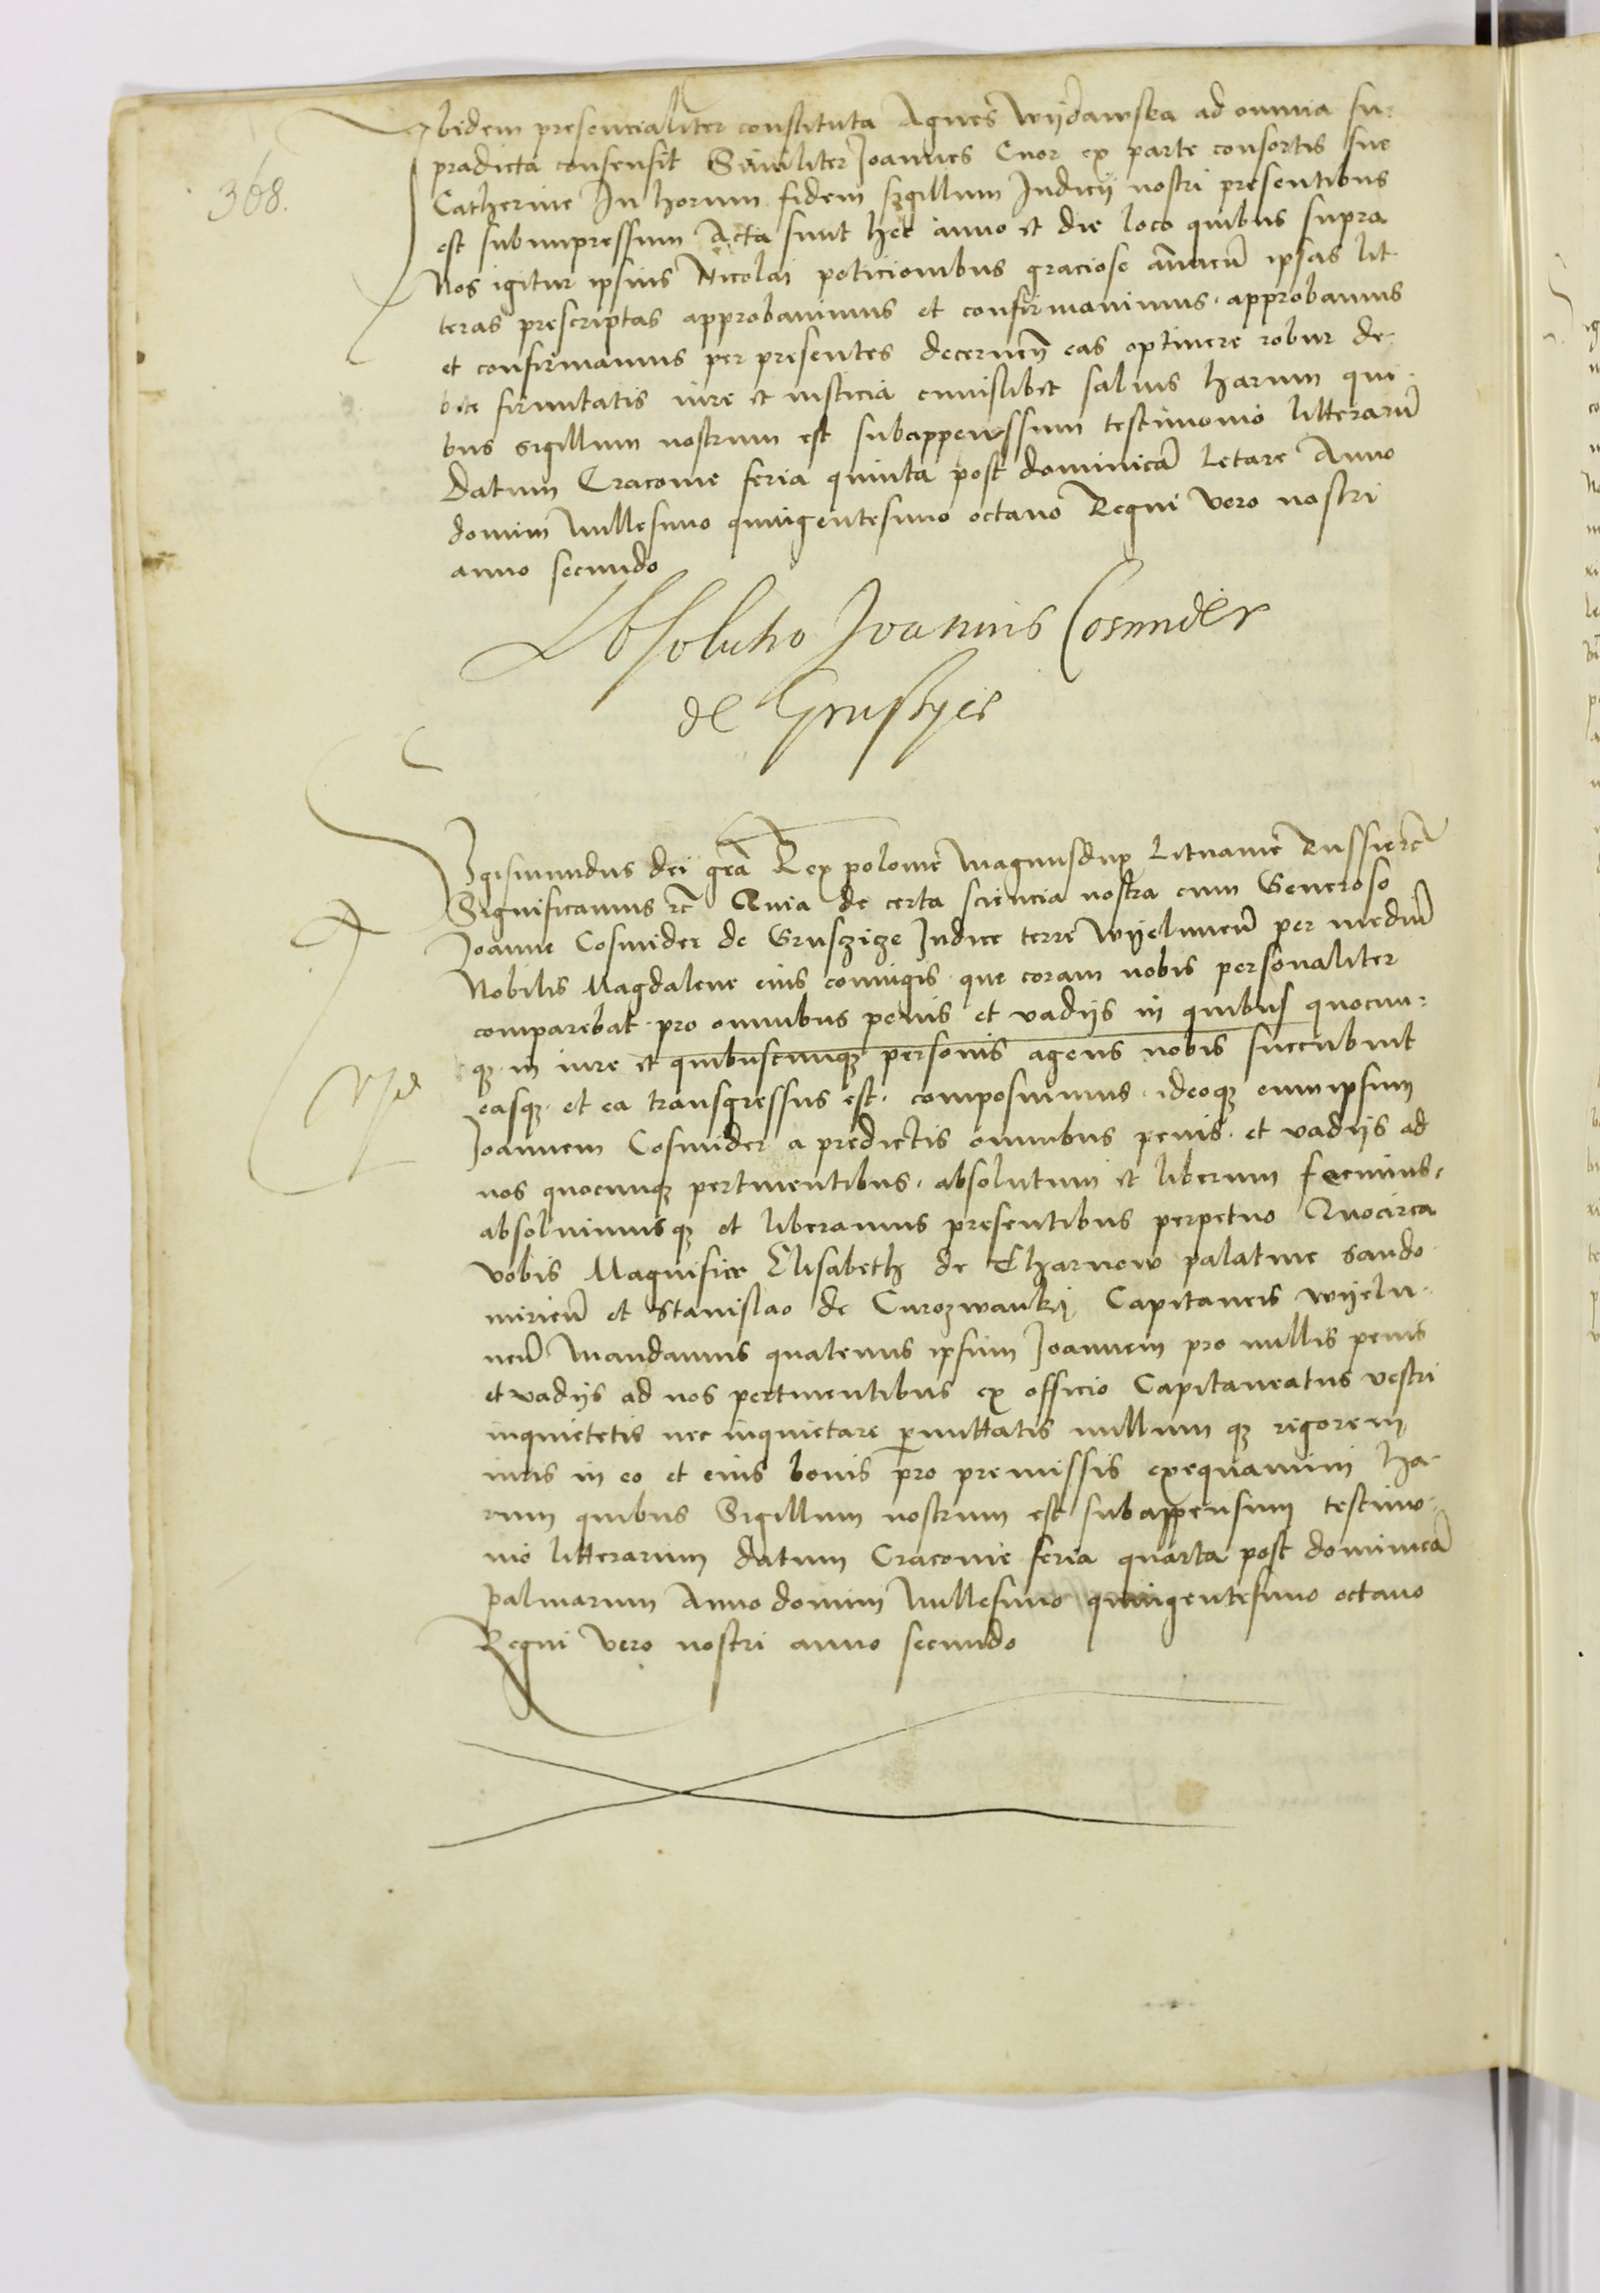 368.
Ibidem presencialiter constituta Agnes Wydawska ad omnia su-
pradicta consensit Similiter Joannes Cnor ex parte consortis sue
Catherine In horum fidem sigillum Judicii nostri presentibus
est subimpressum Acta sunt hec anno et die loco quibus supra
Nos igitur ipsius Nicolai peticionibus graciose annuen̄ ipsas lit-
teras prescriptas approbavimus et confirmavimus. approbamus
et confirmamus per presentes decernen̄ eas optinere robur de-
bite firmitatis iure et iusticia cuiuslibet salvis harum qui-
bus sigillum nostrum est subappenssum testimonio litterarū
Datum Cracovie feria quinta post dominicā Letare Anno
domini Millesimo quingentesimo octavo Regni vero nostri
anno secundo
Absolutio Joannis Cosmider
de
Sigismundus dei grā Rex polonie Magnusdux Lituanie Russie rc̄
Significamus rc̄ Quia de certa sciencia nostra cum Generoso
Joanne Cosmider de Gruszicze Judice terre Wyelunen̄ per mediū
Nobilis Magdalene eius coniugis que coram nobis personaliter
comparebat. pro omnibus penis et vadiis in quibus quocun-
qꝫ in iure et quibuscunqꝫ personis agens nobis succubuit
easqꝫ et ea transgressus est. composuimus. ideoqꝫ eum ipsum
Joannem Cosmider a predictis omnibus penis. et vadiis ad
nos quocunqꝫ pertinentibus. absolutum et liberum fecimus.
absolvimusqꝫ et liberamus presentibus perpetuo Quocirca
vobis Magnifice Elisabeth de Tharnow palatine Sando-
mirien̄ et Stanislao de Curozwanki Capitaneis Wyelu-
nen̄ Mandamus quatenus ipsum Joannem pro nullis penis
et vadiis ad nos pertinentibus ex officio Capitaneatus vestri
inquietetis nec inquietare permittatis nullum qꝫ rigorem
iuris in eo et eius bonis pro premissis exequamini ha-
rum quibus Sigillum nostrum est subappensum testimo-
nio litterarum Datum Cracovie feria quarta post dominicā
palmarum Anno domini Millesimo quingentesimo octavo
Regni vero nostri anno secundo